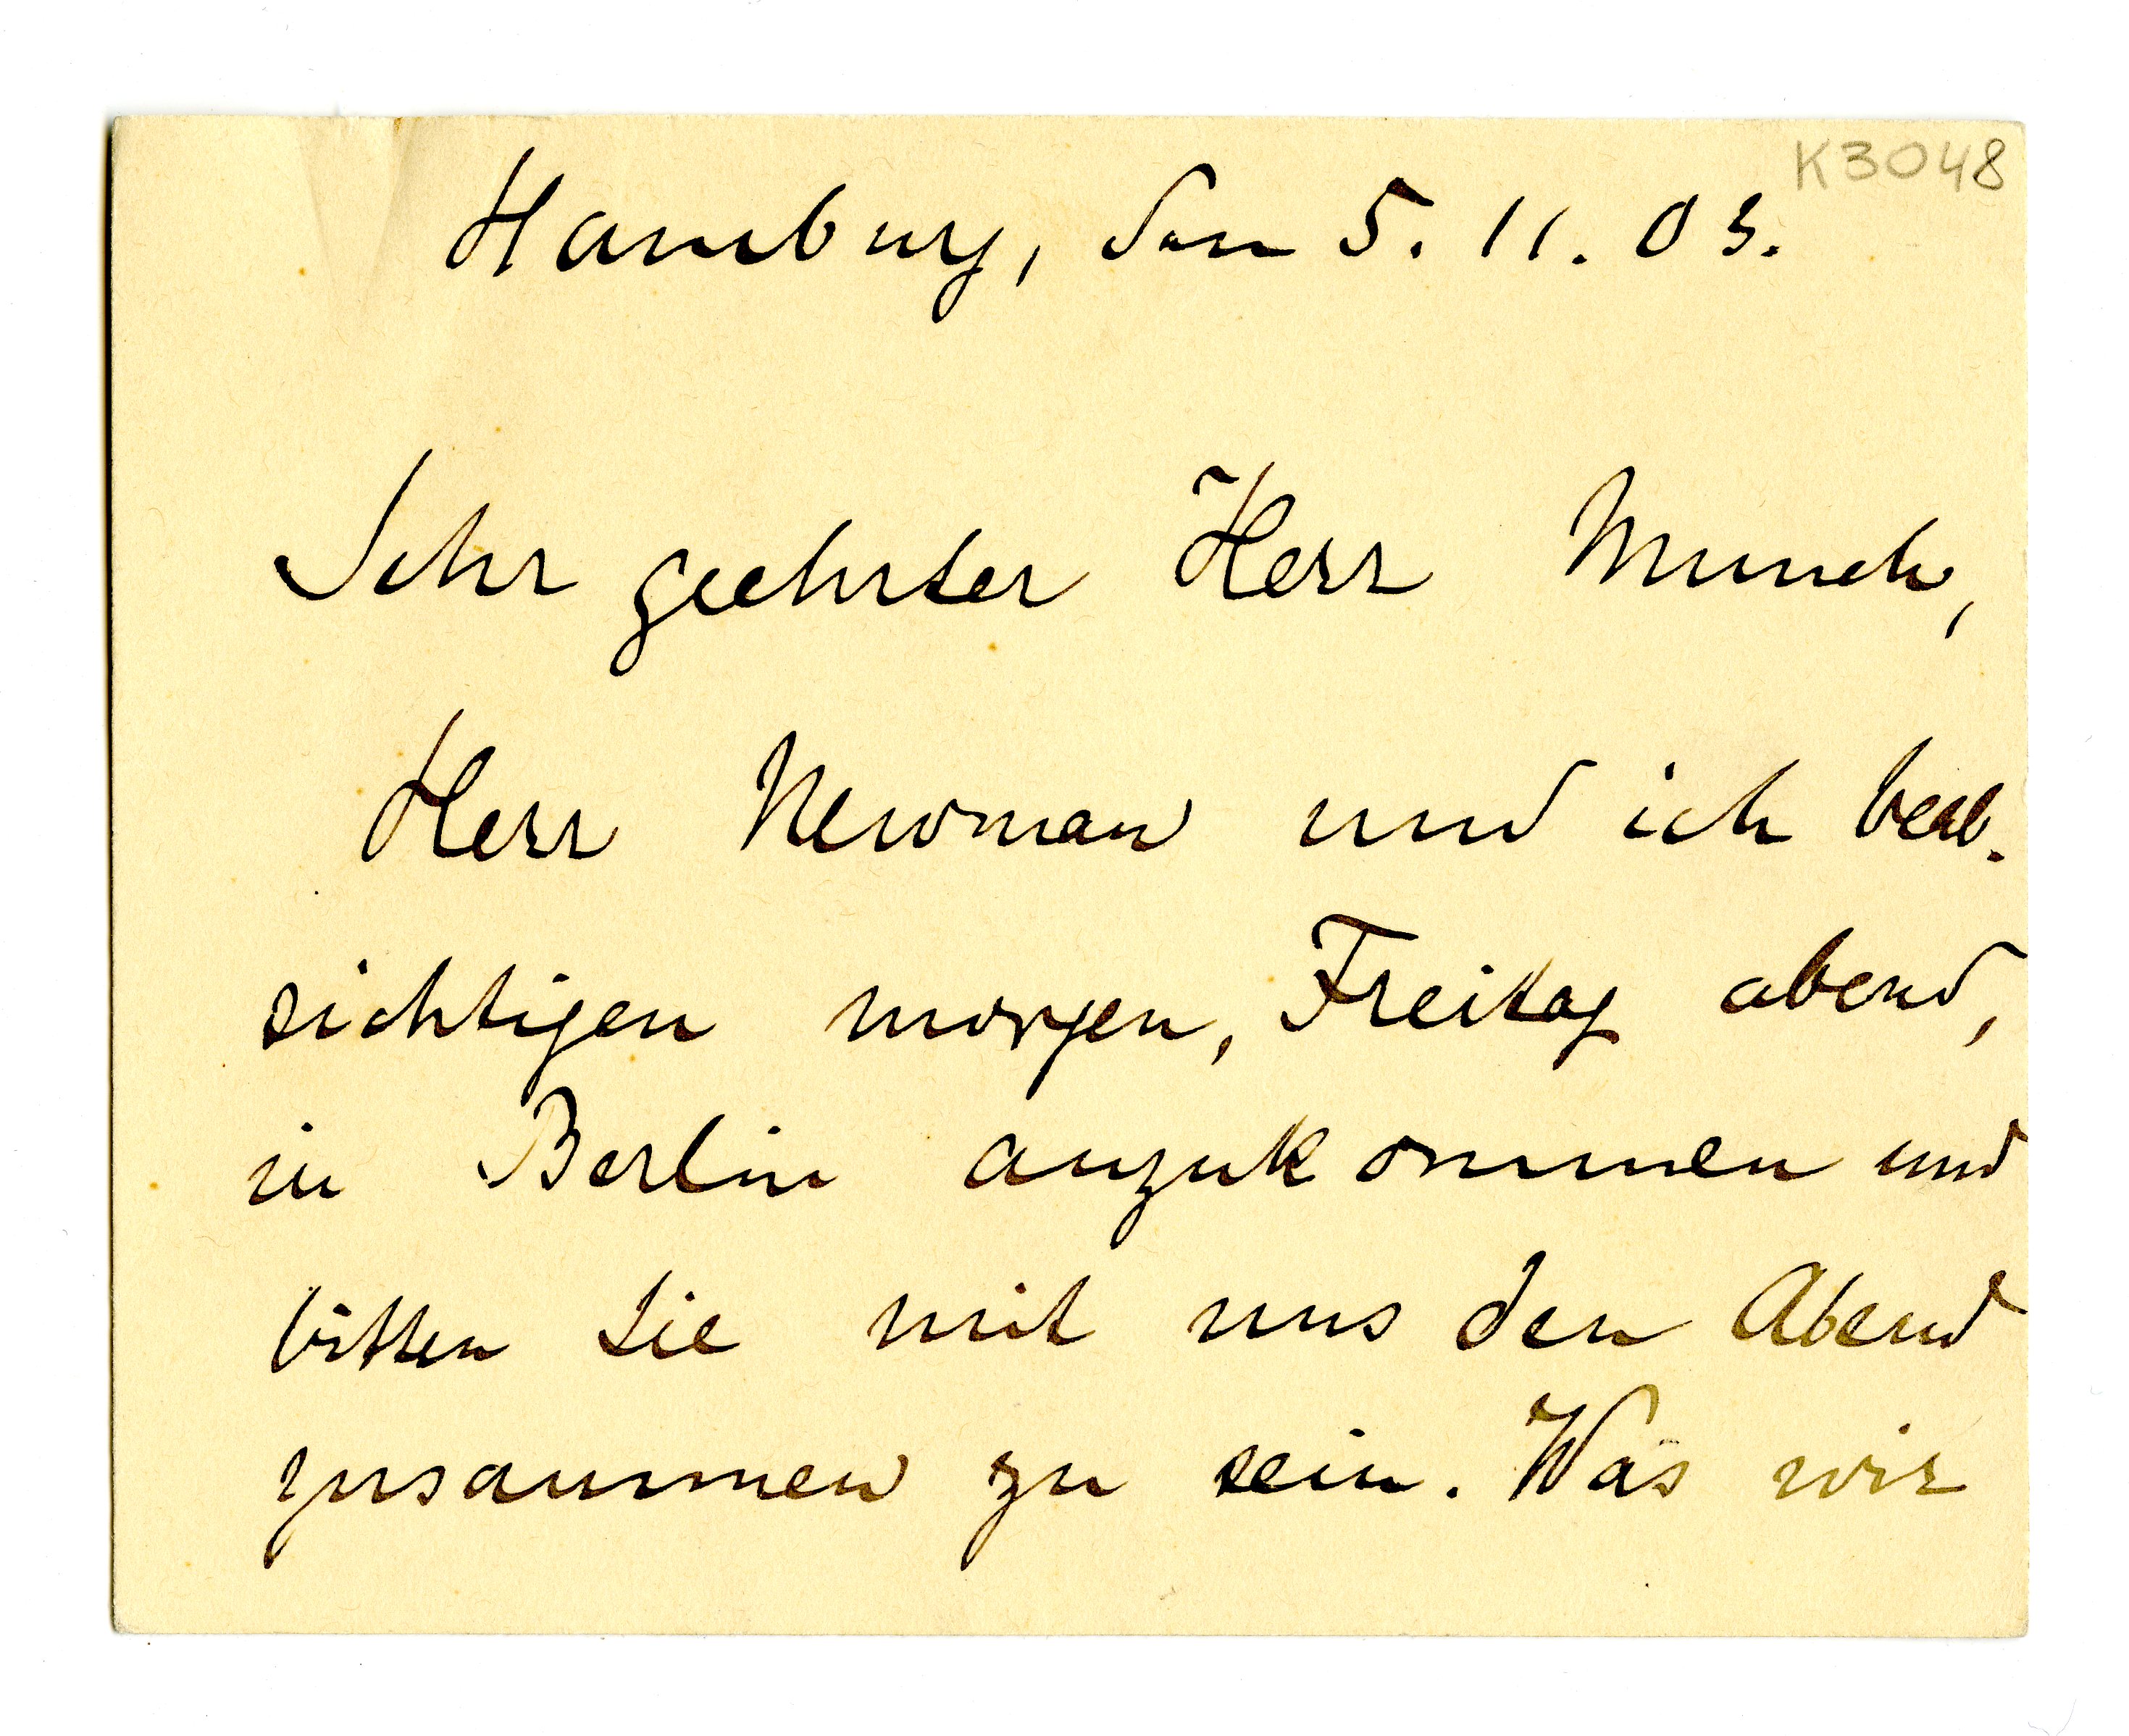 K3048
Hamburg, den 5. 11. 03.
Sehr geehrter Herr Munch,
Herr Newman und ich beab-
sichtigen morgen, Freitag abend,
in Berlin anzukommen und
bitten Sie mit uns den Abend
zusammen zu sein. Was wir